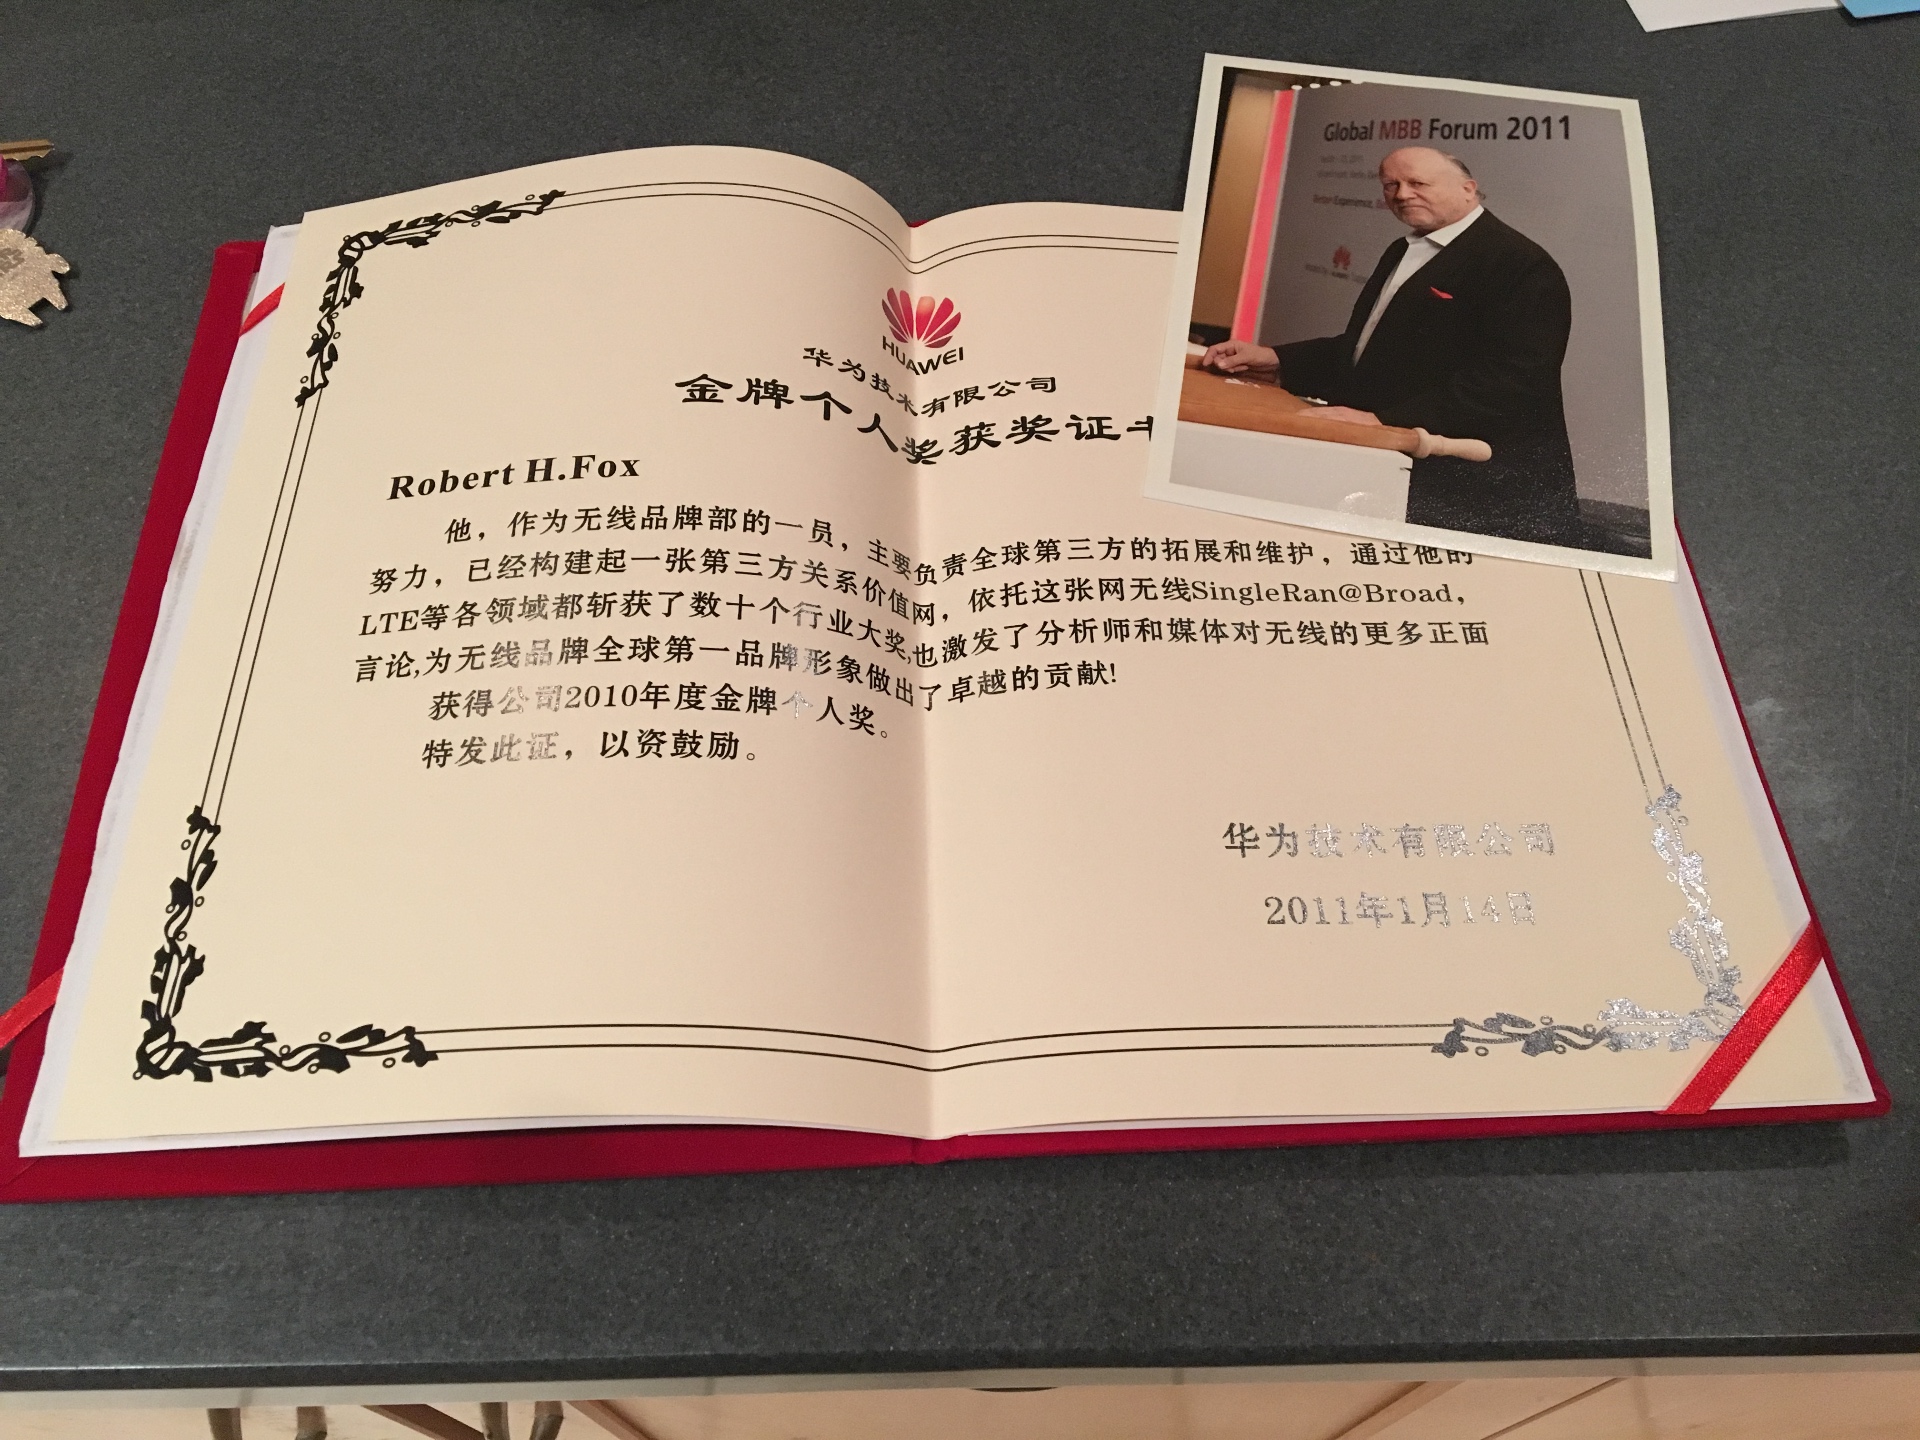 HUAWEI
华为技术有限公司
金牌个人奖获奖证
Robert H.Fox
他，作为无线品牌部的一员，主要负责全球第三方的拓展和维护，通过他的
努力，已经构建起一张第三方关系价值网，依托这张网无线SingleRan@Broad,
LTE等各领域都斩获了数十个行业大奖,也激发了分析师和媒体对无线的更多正面
言论,为无线品牌全球第一品牌形象做出了卓越的贡献!
获得公司2010年度金牌个人奖。
特发此证，以资鼓励。
华为技术有限公司
2011年1月14日
Global MBB Forum 2011